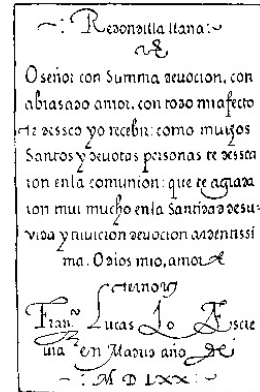 Redondilla llana:
O señor con Summa deuocion, con
abrasado amor, con todo mi afecto
te desseo yo recebir: como muchos
Santos y deuotas personas te dessea
ron enla comunion: que te agrada
ron mui mucho enla Santidad desu
vida y tuuieron deuocion ardentissi
ma. O dios mio, amor
eterno
Franco Lucas Lo Escre
uia en Madrid año de
M D LXX :